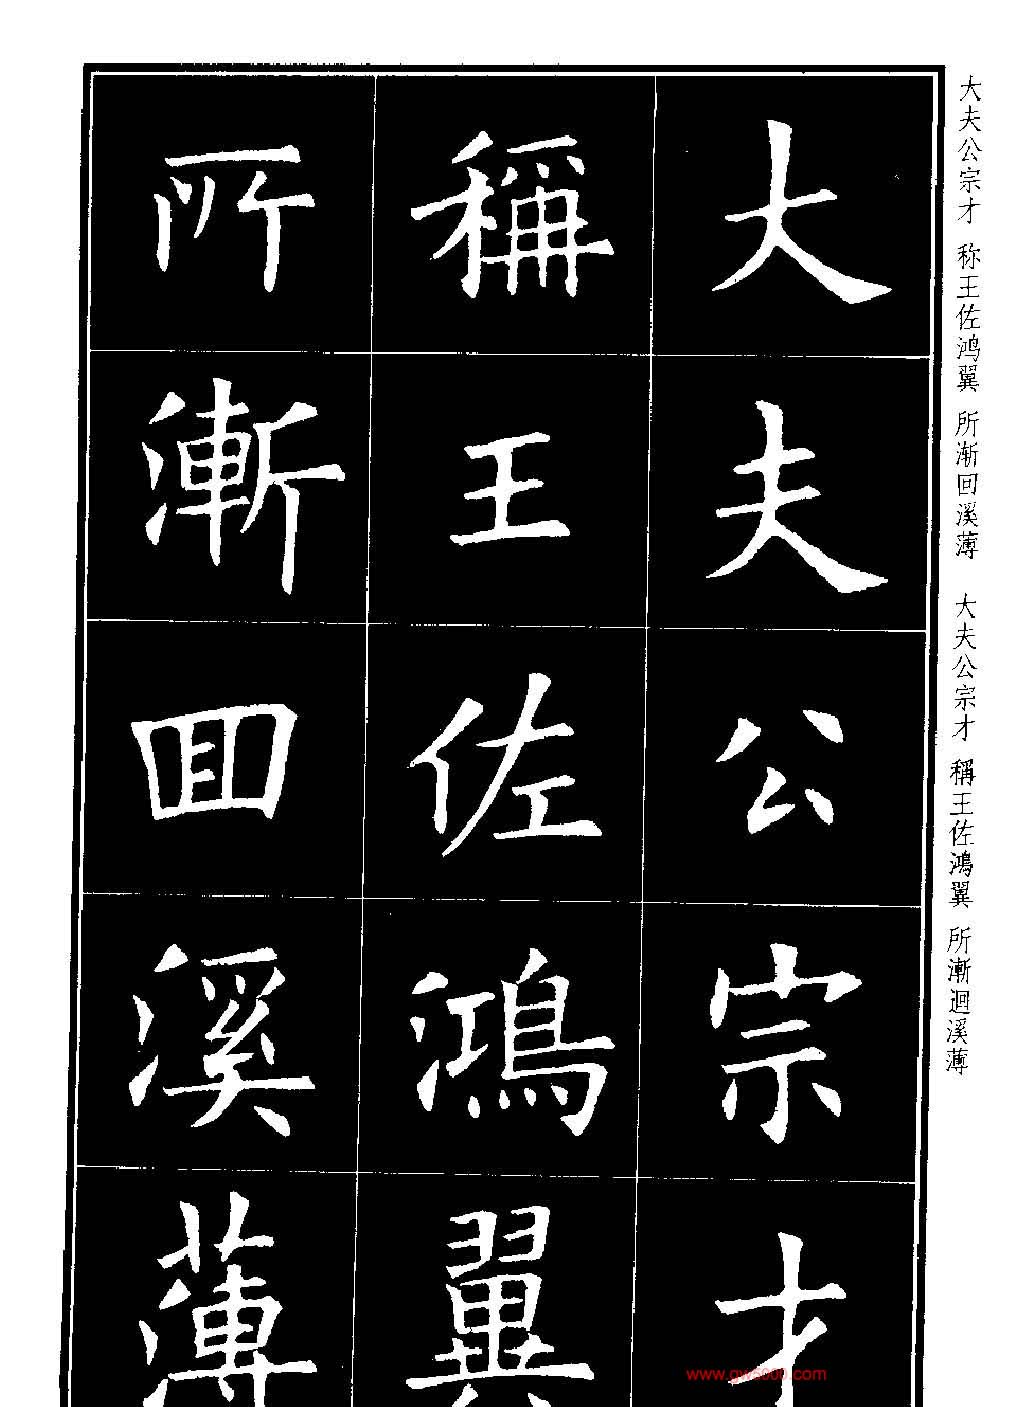 大夫公宗才
稱王佐鴻翼
所漸回溪薄
大夫公宗才 称王佐鸿翼 所渐回溪薄 大夫公宗才 稱王佐鴻翼 所漸迴溪薄
www.gw5000.com